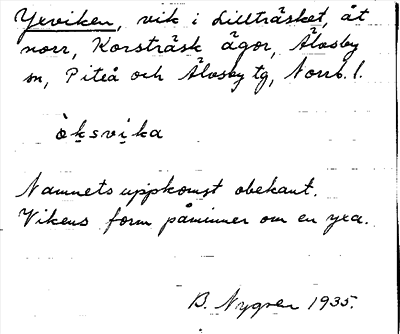 Yxviken, vik i Lillträsket, åt
norr, Korsträsk ägor, Älvsby
sn, Piteå och Älvsby tg, Norrb. l.
ö̀ksvika
Namnets uppkomst obekant.
Vikens form påminner om en yxa.
B. Nygren 1935.